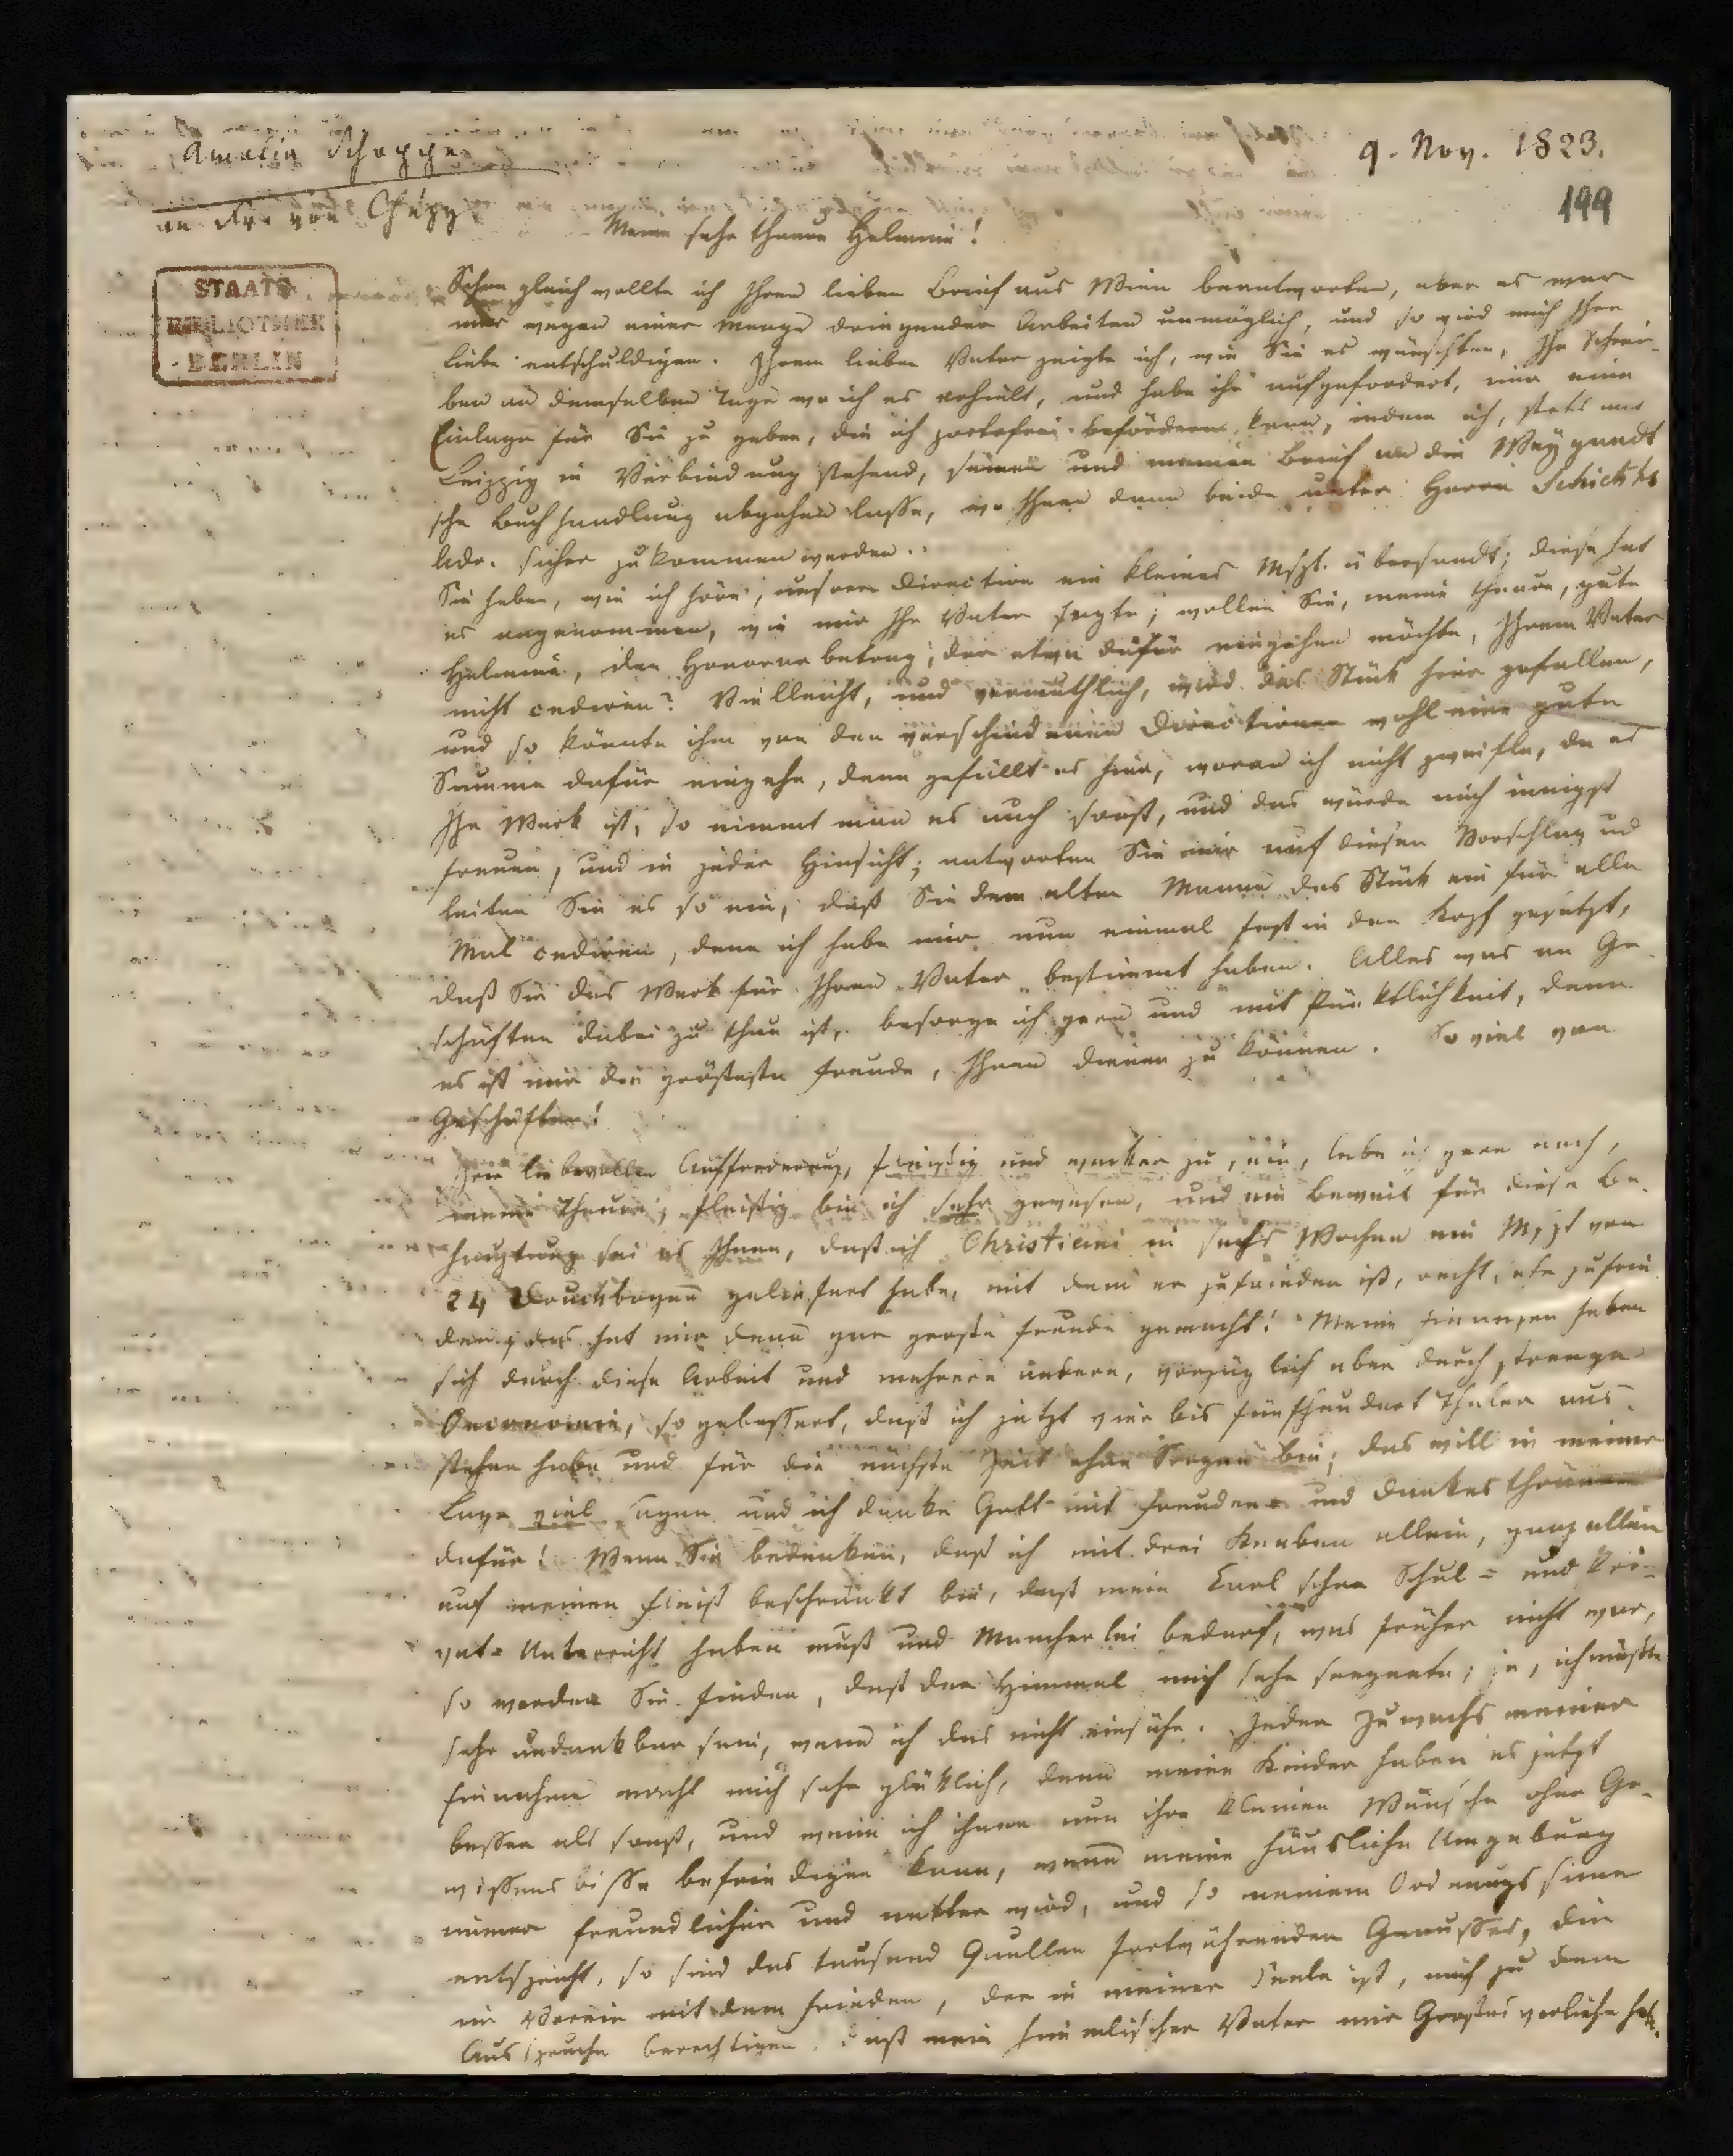 Amalia Schoppe
an Fr. von Chézy
9. Nov. 1823.
199
STAATS
BIBLIOTHEK
BERLIN
Meine sehr theure Helmina!
Schon gleich wollte ich Ihren lieben Brief aus Wien beantworten, aber es war
mir wegen einer Menge dringender Arbeiten unmöglich, und so wird mich Ihre
Liebe entschuldigen. Ihrem lieben Vater zeigte ich, wie Sie es wünschten, Ihr Schrei-
ben an demselben Tage wo ich es erhielt, und habe ihn aufgefordert, mir eine
Einlage für Sie zu geben, die ich portofrei befördern kann, indem ich, stets mit
Leipzig in Verbindung stehend, seinen und meinen Brief an die Weygandt
sche Buchhandlung abgehen lasse, wo Ihnen dann beide unter Herrn Schichts
Adr. sicher zukommen werden.
Sie haben, wie ich höre, unserer Direction ein kleines Mspt. übersandt; diese hat
es angenommen, wie mir Ihr Vater sagte; wollen Sie, meine theure, gute
Helmina, den Honorarbetrag, der etwa dafür eingehen möchte, Ihrem Vater
nicht cediren? Vielleicht, und vermuthlich, wird das Stück hier gefallen,
und so könnte ihm von den verschiedenen Directionen wohl eine gute
Summe dafür eingehe, denn gefällt es hier, woran ich nicht zweifle, da es
Ihr Werk ist, so nimmt man es auch sonst, und das würde mich innigst
freuen, und in jeder Hinsicht; antworten Sie mir auf diesen Vorschlag ud
leiten Sie es so ein, daß Sie dem alten Manne das Stück ein für alle
Mal cediren, denn ich habe mir nun einmal fest in den Kopf gesetzt,
daß Sie das Werk für Ihren Vater bestimmt haben. Alles was an Ge-
schäften dabei zu thun ist, besorge ich gern und mit Pünktlichkeit, denn
es ist mir die größeste Freude, Ihnen dienen zu können. So viel von
Geschäften!
Ihrer liebevollen Aufforderung, fleißig und wacker zu sein, lebe ich gern nach,
meine Theure; fleißig bin ich sehr gewesen, und ein Beweis für diese Be-
hauptung sei es Ihnen, daß ich Christiani in sechs Wochen ein Mspt von
24 Druckbogen geliefert habe, mit dem er zufrieden ist, recht sehr zufrie
den; das hat mir denn gar große Freude gemacht! Meine Finanzen haben
sich durch diese Arbeit und mehrere andere, vorzüglich aber durch strenge
Oeconomie, so gebessert, daß ich jetzt vier bis fünfhundert Thaler aus-
stehen habe und für die nächste Zeit ohne Sorgen bin; das will in meiner
Lage viel sagen und ich danke Gott mit Freuden- und Dankesthränen
dafür! Wenn Sie bedenken, daß ich mit drei Knaben allein, ganz allein
auf meinen Fleiß beschränkt bin, daß mein Carl schon Schul- und Pri-
vat-Unterricht haben muß und Mancherlei bedarf, was früher nicht war,
so werden Sie finden, daß der Himmel mich sehr seegnete; ja, ich müßte
sehr undankbar sein, wenn ich das nicht einsähe. Jeder Zuwachs meiner
Einnahme macht mich sehr glücklich, denn meine Kinder haben es jetzt
besser als sonst, und wenn ich ihnen nun ihre kleinen Wünsche ohne Ge-
wissensbisse befriedigen kann, wenn meine häusliche Umgebung
immer freundlicher und netter wird, und so meinem Ordnungssinne
entspricht, so sind das tausend Quellen fortwährenden Genusses, die
im Verein mit dem Frieden, der in meiner Seele ist, mich zu dem
Ausspruche berechtigen, daß mein himmlischer Vater mir Großes verliehen hat.